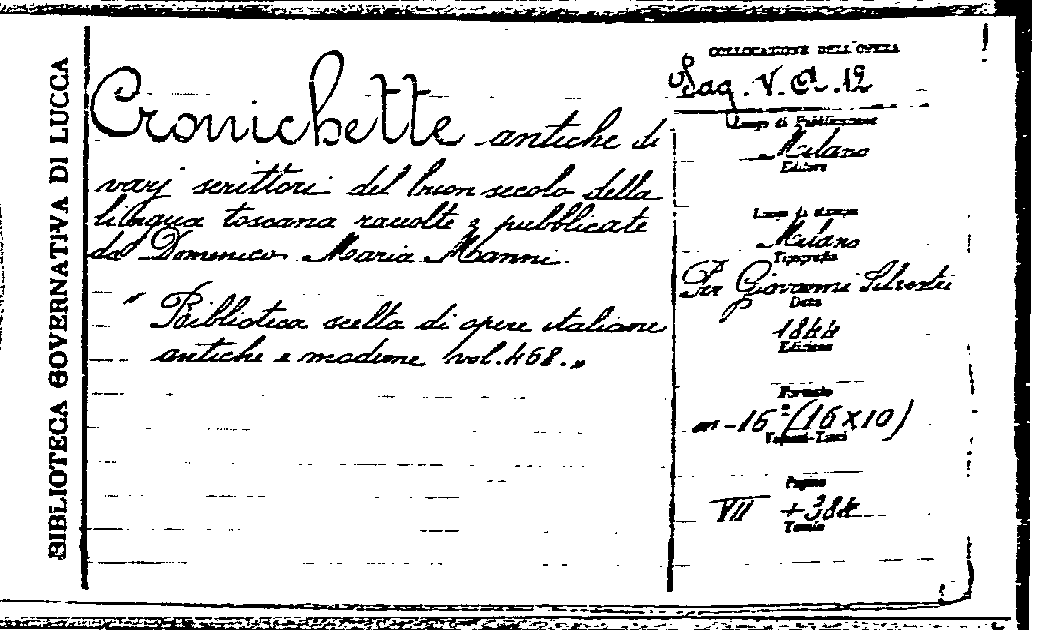 BIBLIOTECA GOVERNATIVA DI LUCCA
Cronichette antiche di
varj scrittori del buon secolo della
lingua toscana raccolte e pubblicate
da Domenico Maria Manni.
" Biblioteca scelta di opere italiane
antiche e moderne vol. 468. "
COLLOCAZIONE DELL'OPERA
Sag. V. A. 12
Luogo di Pubblicazione
Milano
Editore
Luogo di stampa
Milano
Tipografia
Per Giovanni Silvestri
Data
1844
Edizione
Formato
in-16° (16 x 10)
Volumi-Tomi
Pagine
VII + 384
Tavole